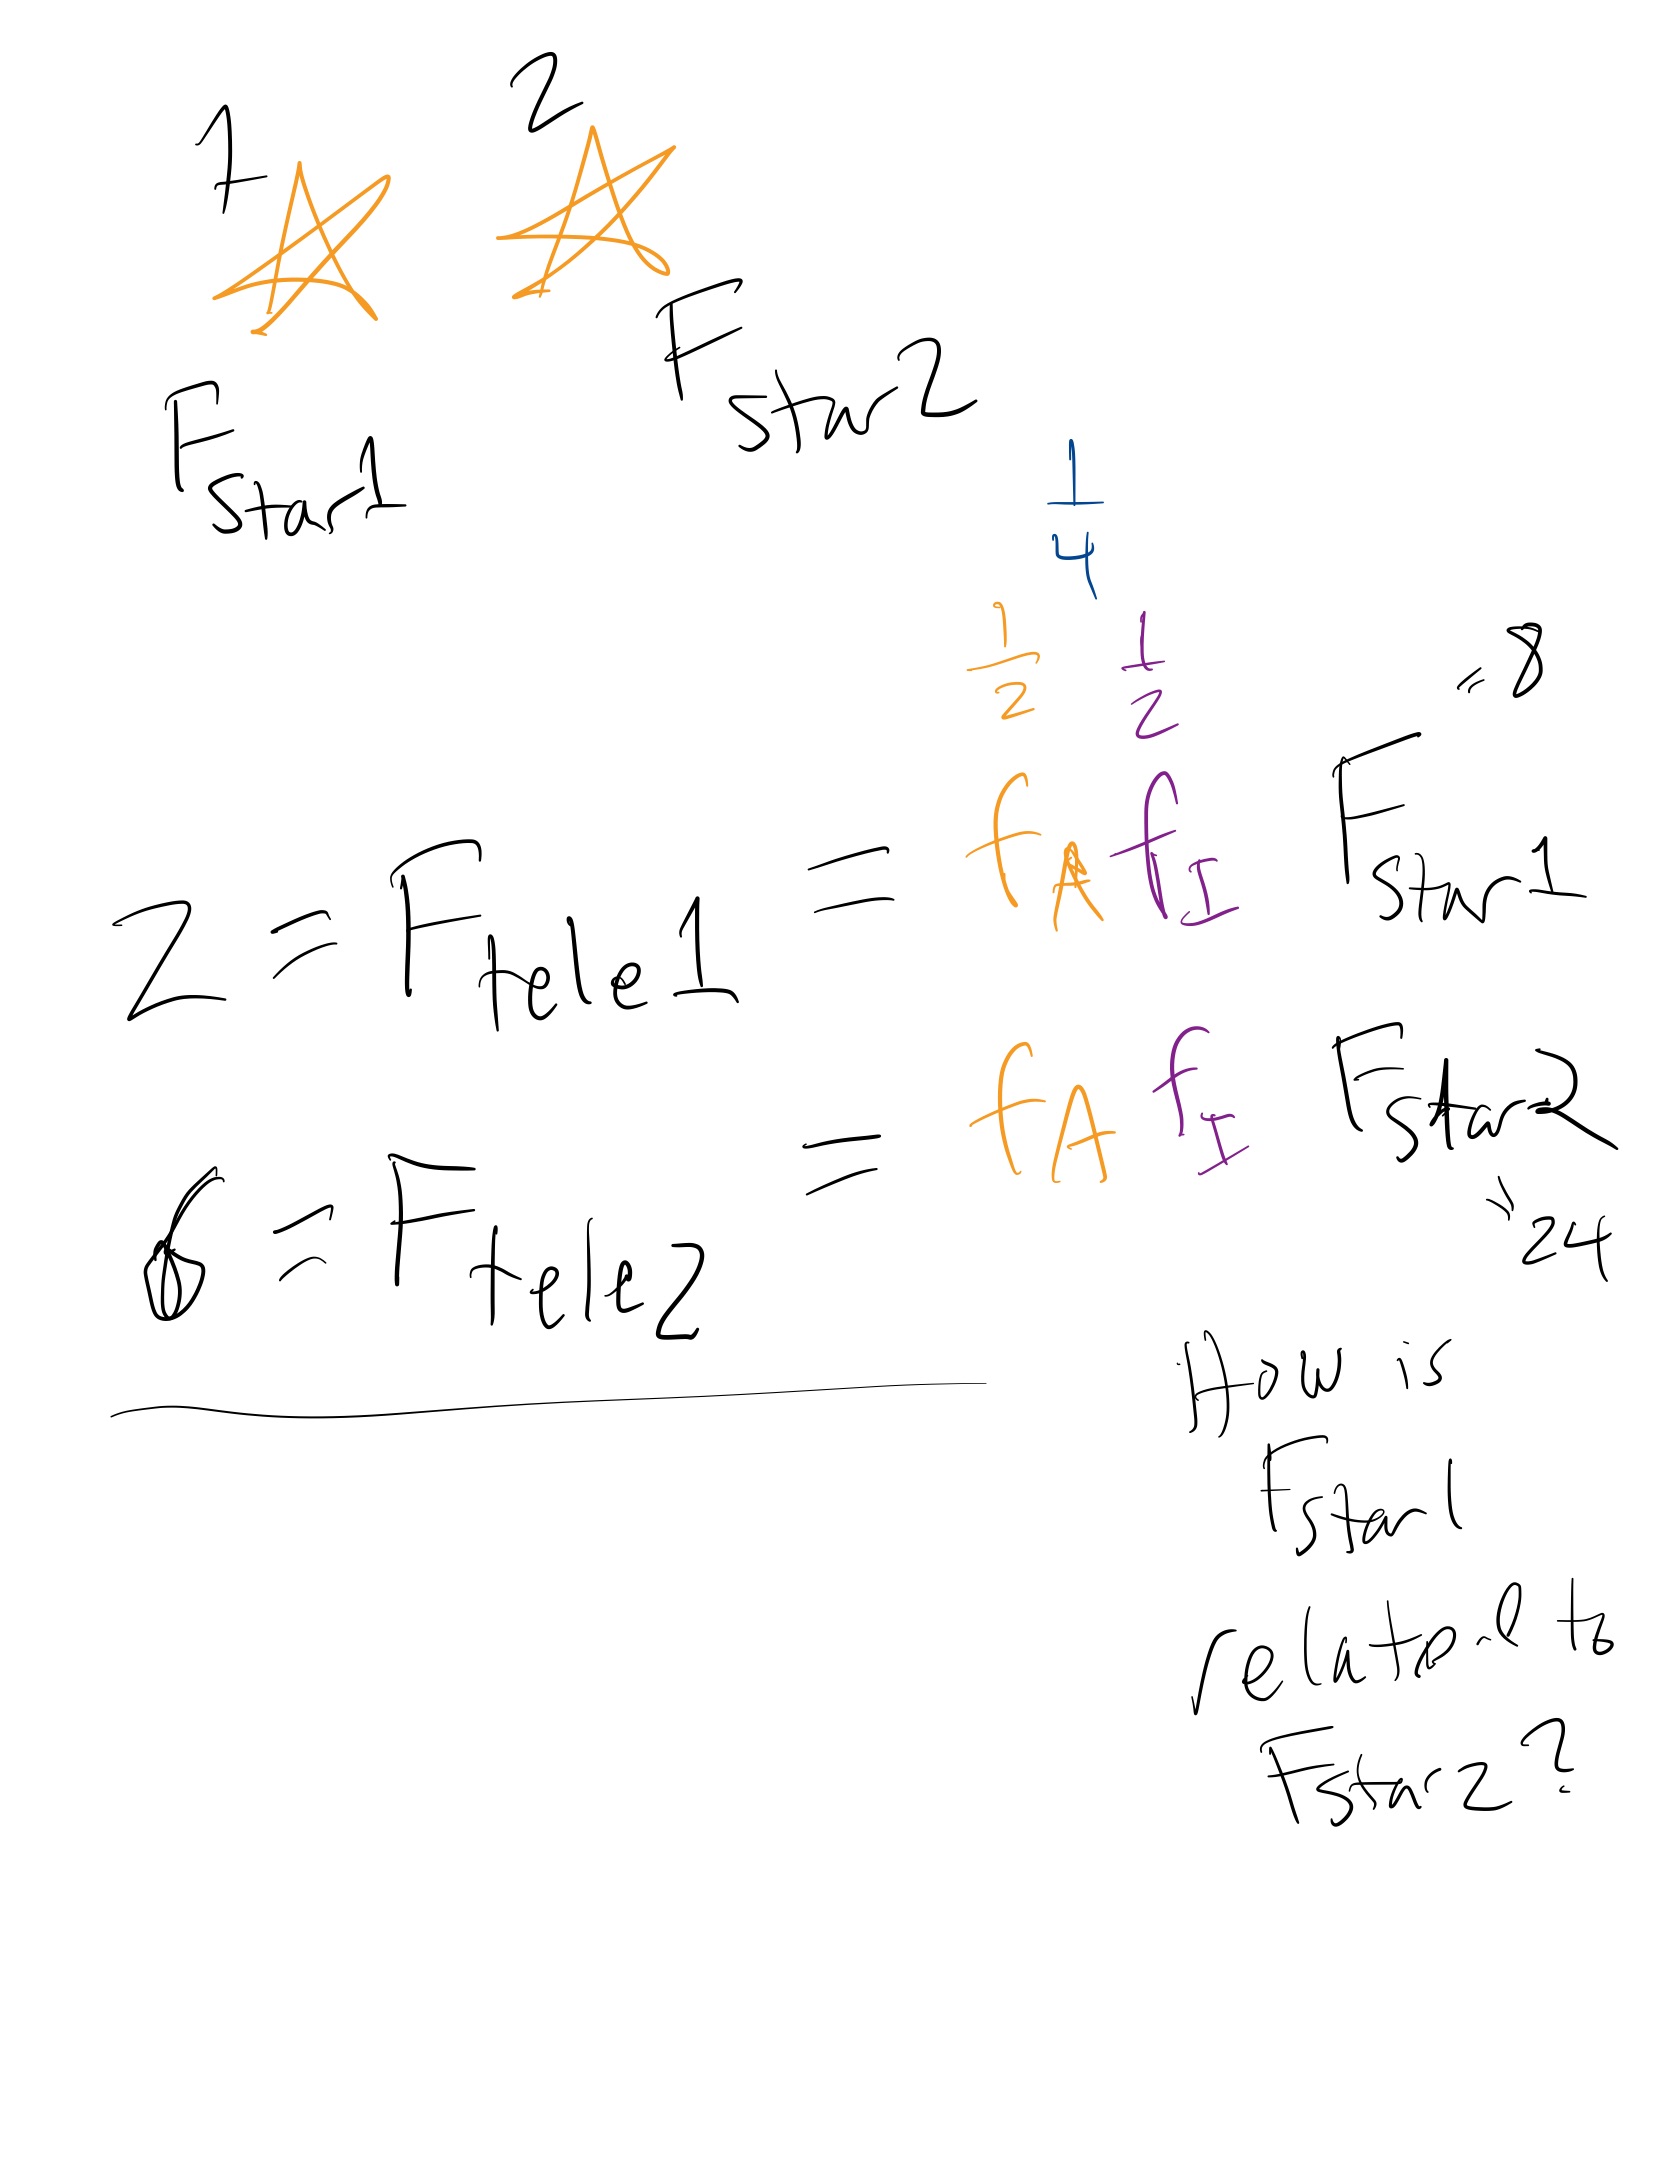 1 2
F star1
F star2
1/4
1/2 1/2
= 8
2 = F tele1 = f A f I F star1
6 = F tele2 = f A f I F star2
= 24
How is
F star1
related to
F star2?